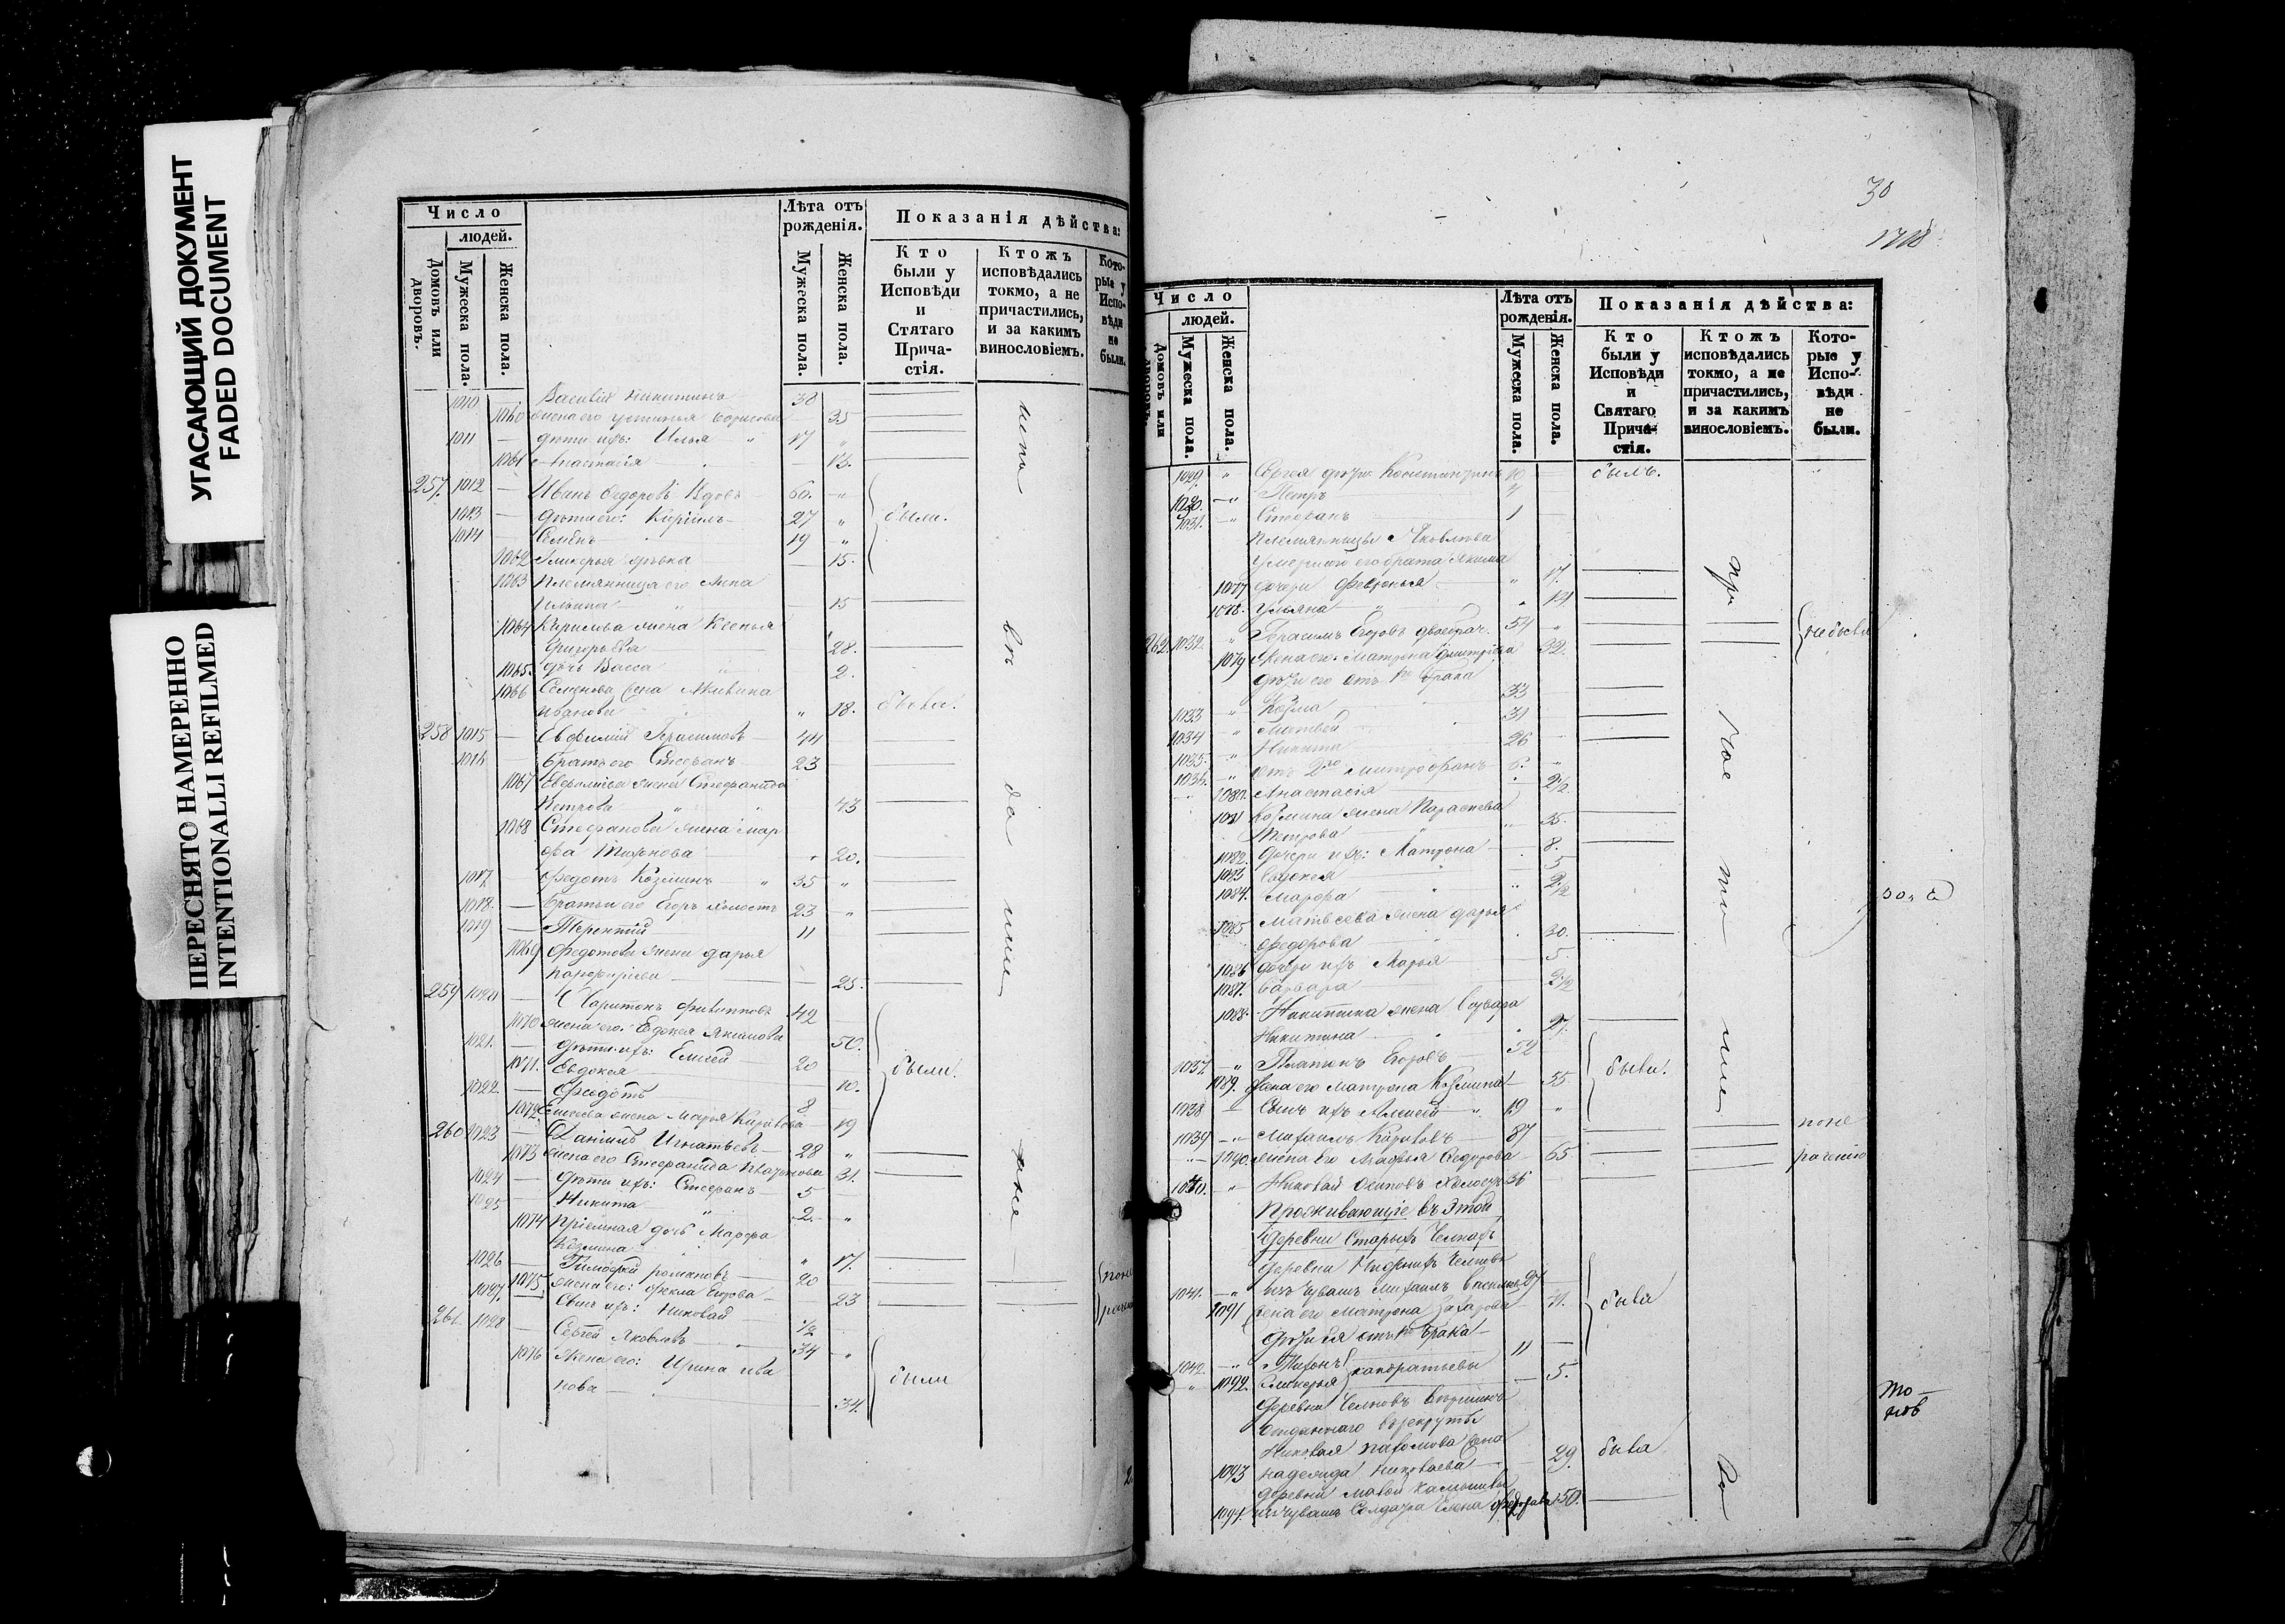 УГАСАЮЩИЙ ДОКУМЕНТ
FADED DOCUMENT
ПЕРЕСНЯТО НАМЕРЕННО
INTENTIONALLI REFILMED
Число
людей.
Домовъ или дворовъ.
Мужеска пола.
Женска пола.
Лѣта отъ рожденія.
Мужеска пола.
Женска пола.
Показанія дѣйства:
Кто были у Исповѣди и Стятаго Прича-стія.
Ктожъ исповѣдались токмо, а не причастились, и за какимъ винословіемъ.
Кото-рые у Испо-вѣди не были.
1010 — Василій Никитинъ 38
1060 жена его Устинья Борисова 35
1011 — дѣти ихъ: Илья 17
1061 Анастасія 13.
257. 1012 — Иванъ Федоровъ Вдовъ 60.
1013 — дѣти его: Кирилъ 27 были.
1014 Семенъ 19
1062 Гликерья дѣвка 15.
1063 Племянница его Анна
Ильина 15
1064 Кирилова жена Ксенья
Григорьева 28.
1065. дочь Васса 2.
1066 Семенова жена Акилина
Иванова 18. были.
258 1015 — Евфимій Герасимовъ 44
1016 — братъ его Стефанъ 23
1067 Евфимьева жена Стефанида
Петрова 43
1068 Стефанова жена Мар
фа Тихонова 20.
1017 Федотъ Козминъ 35
1018. — братья его Егоръ холостъ 23
1019 — Терентій 11
1069 Федотова жена Дарья
Парфирьева 25.
259 1020 — Харитонъ Филипповъ 42
1070 жена его: Евдокея Акимова 50.
1021. — дѣти ихъ: Елисей 20 были.
1071. Евдокея 10.
1022. — Федотъ 8
1072 Елисеева жена Марья Кирилова 19
260 1023 — Даніилъ Игнатьевъ 28
1073 жена его Стефанида Платонова 31.
1024 — дѣти ихъ: Стефанъ 5
1025 — Никита 2.
1074 Пріемная дочь Марфа
Козмина 17.
1026 — Тимофей Романовъ 20
1075. жена его: Фекла Егорова 23
1027. — Сынъ ихъ: Николай 1/2
261. 1028 — Сергей Яковлевъ 34
1076 Жена его: Ирина Ива
нова 34. были
30
1718
Число
людей.
Домовъ или
Мужеска пола.
Женска пола.
Лѣта отъ рожденія.
Мужеска пола.
Женска пола.
Показанія дѣйства:
Кто были у Исповѣди и Святаго Прича-стія.
Ктожъ исповѣдались токмо, а не причастились, и за какимъ винословіемъ.
Кото-рые у Испо-вѣди не были.
1029. Сергея дѣти: Константинъ 10 былъ.
1030. Петръ 7
1031. Стефанъ 1
Племянницы Яковлева
Умершаго его брата Якима
1077 дочери Февронья 17.
1078. Ульяна 14
262. 1032. Герасимъ Егоровъ двоебрач. 54
1079 Жена его. Матрона Дмитріева 32.
Дѣти его отъ 1го брака
1033 Козма 33
1034 Матвей 31
1035. Никита 26
1036. отъ 2го Митрофанъ 6.
1080. Анастасія 2 1/2
1081 Козмина жена Параскева
Петрова 35.
1082. Дочери ихъ: Матрона 8.
1083 Евдокея 5
1084. Марфа 2 1/2
1085 Матвеева жена Дарья
Федорова 30.
1086 дочери ихъ Марья 5.
1087. Варвара 2 1/2
1088. Никитина жена Варвара
Никитина 27.
1037. Платонъ Егоровъ 52
1089. Жена его Матрона Козмина 55. были.
1038 Сынъ ихъ Алексей 19
1039 Михаилъ Кириловъ 87
1090. жена его Агафья Федорова 65
1040. Николай Осиповъ Холостъ 36
Проживающіе въ этой
Деревни Старыхъ Челнахъ
Деревни Нижнихъ Челновъ
1041. изъ чувашъ Михаилъ Васильевъ 27
1091 Жена его Матрона Захарова 31. были
Дѣти ея отъ 1го брака
1042. Тихонъ 11
1092. Гликерья Кондратьевы 5.
Отданнаго въ рекруты
Николая Пахомова жена
1093 Надежда Николаева 29. была
1094. изъ чувашъ Солдатка Елена Федорова 50.